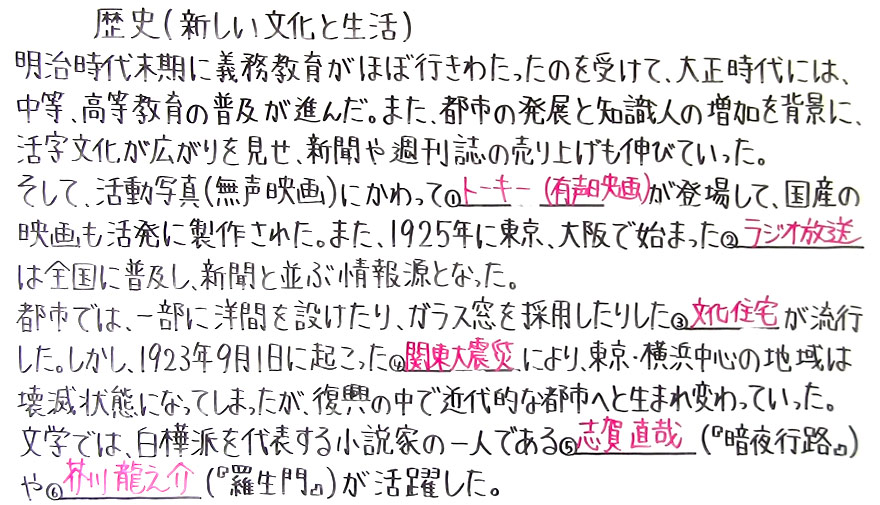 歴史(新しい文化と生活)
明治時代末期に義務教育がほぼ行きわたったのを受けて、大正時代には、
中等、高等教育の普及が進んだ。また、都市の発展と知識人の増加を背景に、
活字文化が広がりを見せ、新聞や週刊誌の売り上げも伸びていった。
そして、活動写真(無声映画)にかわって①トーキー(有声映画)が登場して、国産の
映画も活発に製作された。また、1925年に東京、大阪で始まった②ラジオ放送
は全国に普及し、新聞と並ぶ情報源となった。
都市では、一部に洋間を設けたり、ガラス窓を採用したりした③文化住宅が流行
した。しかし、1923年9月1日に起こった④関東大震災により、東京・横浜中心の地域は
壊滅状態になってしまったが、復興の中で近代的な都市へと生まれ変わっていった。
文学では、白樺派を代表する小説家の一人である⑤志賀直哉(『暗夜行路』)
や⑥芥川龍之介(『羅生門』)が活躍した。